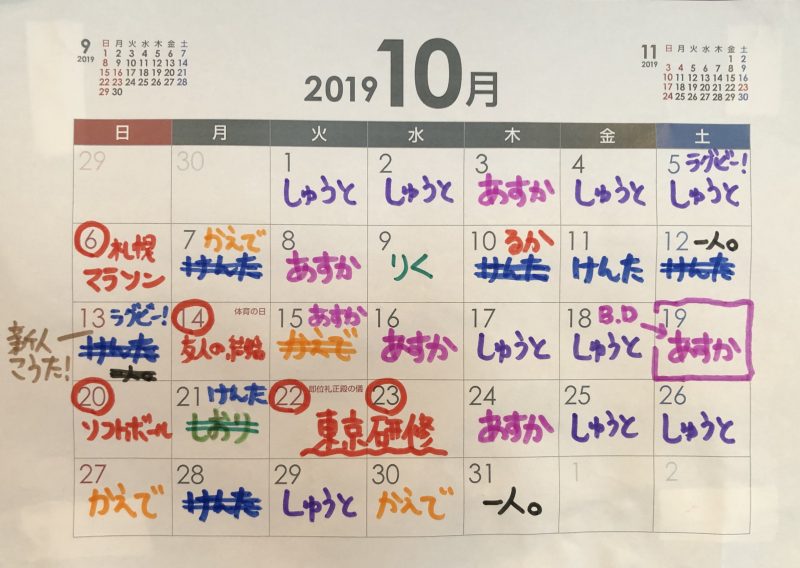 9
2019
日 月 火 水 木 金 土
1 2 3 4 5 6 7
8 9 10 11 12 13 14
15 16 17 18 19 20 21
22 23 24 25 26 27 28
29 30
2019 10月
11
2019
日 月 火 水 木 金 土
1 2
3 4 5 6 7 8 9
10 11 12 13 14 15 16
17 18 19 20 21 22 23
24 25 26 27 28 29 30
日 月 火 水 木 金 土
29
30
1
しゅうと
2
しゅうと
3
あすか
4
しゅうと
5 ラグビー!
しゅうと
6 札幌
マラソン
7 かえで
けんた
8
あすか
9
りく
10 るか
けんた
11
けんた
12 一人。
けんた
13 ラグビー!
けんた
一人。
新人
こうた!
14 体育の日
友人の、結婚
15 あすか
かえで
16
あすか
17
しゅうと
18 B.D
しゅうと
19
あすか
20
ソフトボール
21 けんた
しおり
22 即位礼正殿の儀
23
東京研修
24
あすか
25
しゅうと
26
しゅうと
27
かえで
28
けんた
29
しゅうと
30
かえで
31
一人。
1
2